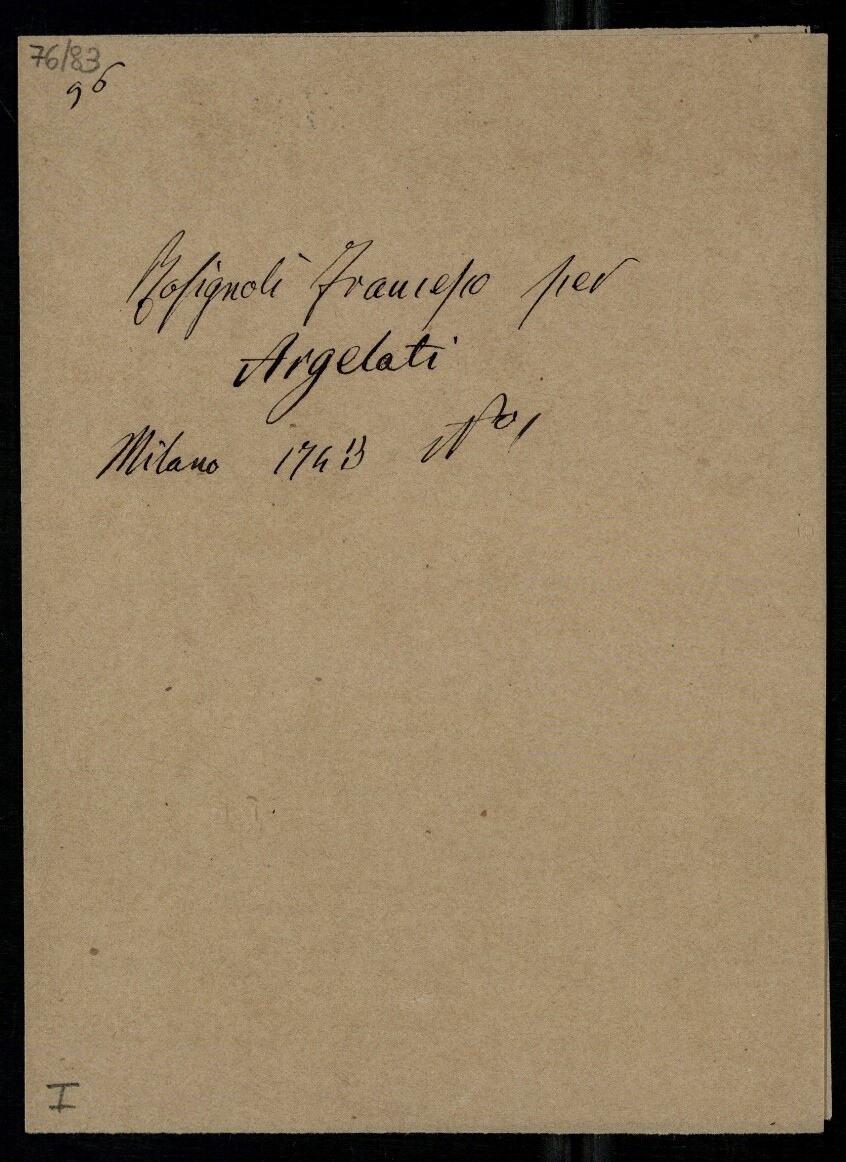 76/83
96
Rosignoli Francesco per
Argelati
Milano 1743 No 1
I